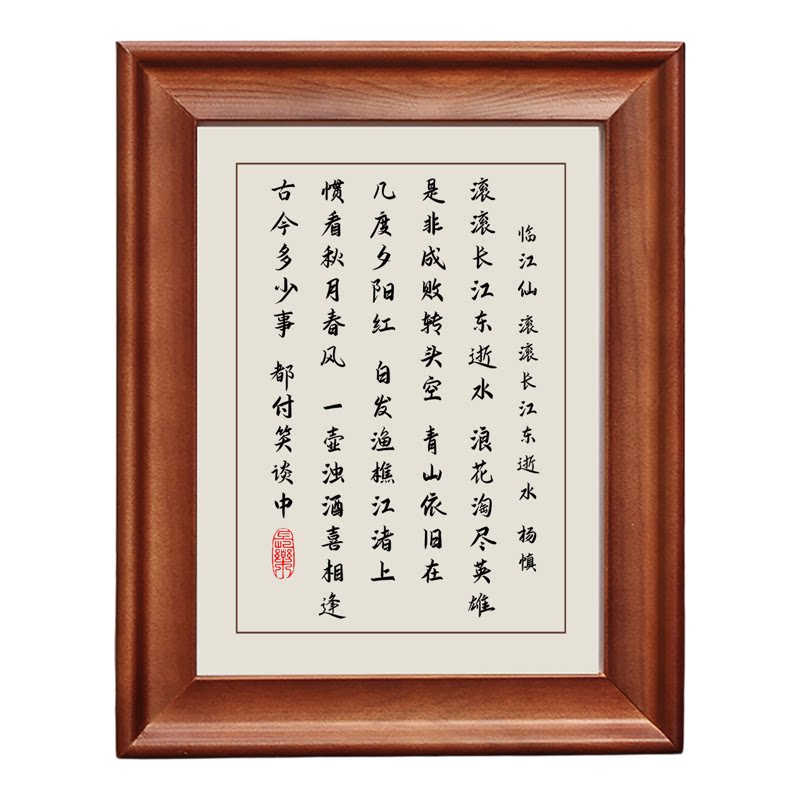 临江仙 滚滚长江东逝水 杨慎
滚滚长江东逝水 浪花淘尽英雄
是非成败转头空 青山依旧在
几度夕阳红 白发渔樵江渚上
惯看秋月春风 一壶浊酒喜相逢
古今多少事 都付笑谈中
长乐